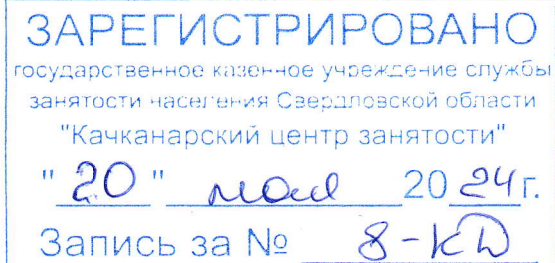 ЗАРЕГИСТРИРОВАНО
государственное казенное учреждение службы
занятости населения Свердловской области
"Качканарский центр занятости"
"20" мая 2024г.
Запись за № 8-КД